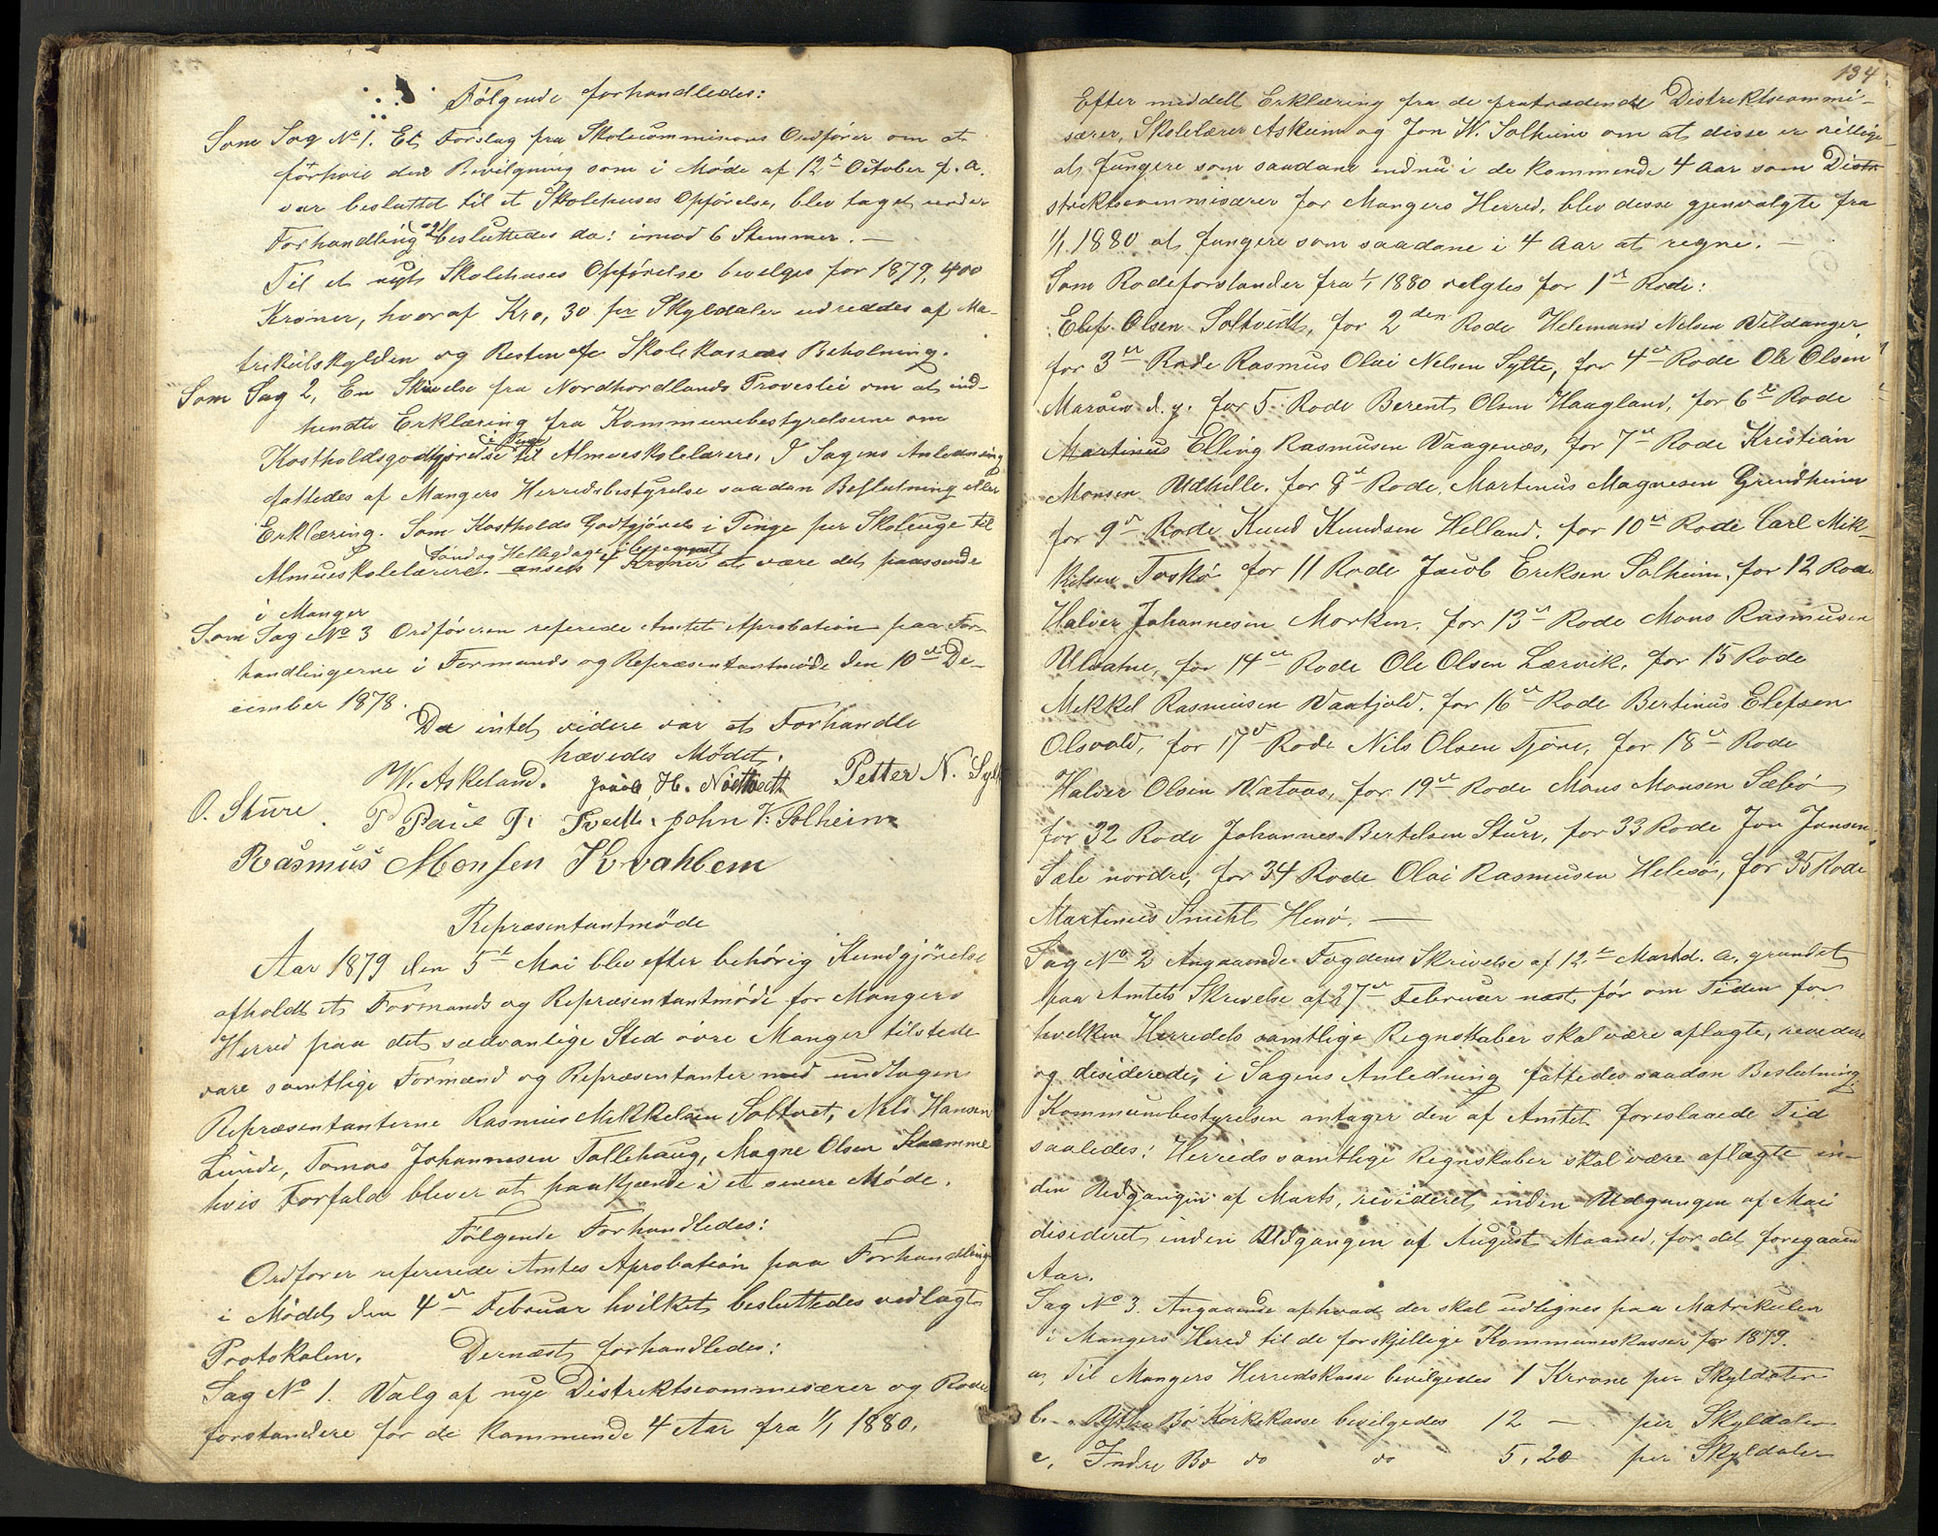 Følgende forhandledes:
Som Sag No 1. Et Forslag fra Skolecommisions Ordfører om at
forhøie den Bevilgning som i Møde af 12te October f. a.
var besluttet til et Skolehuses Opførelse, blev taget under
Forhandling og besluttedes da: imod 6 Stemmer. —
Til et nyt Skolehuses Opførelse bevilges for 1879, 400
Kroner, hvoraf Kro, 30 pr Skyldaler udreddes af Ma-
trikulskylden og Resten af Skolekassens Beholning.
Som Sag 2, En Skrivelse fra Nordhordlands Provestie om at ind-
hendte Erklæring fra Kommunebestyrelserne om
Kostholdsgodtgjørelse i Penge til Almueskolelærere. I Sagens Anledning
fattedes af Mangers Herredsbestyrelse saadan Beslutning eller
Erklæring. Som Kostholds Godtgjørels i Penge per Skoleuge til
Almueskolelærere. Søndag Helligdage iberegnet ansees 4 Kroner at være det passende
i Manger
Som Sag No 3 Ordføreren referede Amtets Aprobation paa For-
handlingerne i Formands og Repræsentantmøde den 10de De-
cember 1878.
Da intet videre var at Forhandle
hævedes Mødet.
W. Askeland. Jacob H. Nodtvedt Petter N. Sylt
O. Sture. P Paul J. Tvedt. John V. Solheim
Rasmus Monsen Kvahlem
Repræsentantmøde
Aar 1879 den 5te Mai blev efter behørig Kundgjørelse
afholdt et Formands og Repræsentantmøde for Mangers
Herred paa det sædvanlige Sted øvre Manger tilstede
vare samtlige Formænd og Repræsentanter med undtagen
Repræsentanterne Rasmus Mikkelsen Soltvet, Nels Hansen
Lunde, Tomas Johannesen Tollehaug, Magne Olsen Kaamme
hvis Forfald blever at paakjende i et senere Møde.
Følgende Forhandledes:
Ordfører refererede Amtes Aprobation paa Forhandling
i Mødet den 4de Februar hvilket besluttedes vedlagt
Protokolen. Dernæst forhandledes:
Sag No 1. Valg af nye Distriktscommisærer og Rode
forstandere for de kommende 4 Aar fra 1/1 1880.
134
Efter meddelt Erklæring fra de fratrædende Distriktscommi-
særer, Skolelærer Askeim og Jon W. Solheim om at disse er villige
at fungere som saadane endnu i de kommende 4 Aar som Distr
striktscommisærer for Mangers Herred, blev desse gjenvalgte fra
1/1 1880 at fungere som saadane i 4 Aar at regne. —
Som Rodeforstander fra 1/1 1880 velgtes for 1ste Rode:
Elef Olsen Soltvedt, for 2den Rode Helemand Nelsen Vildanger
for 3de Rode Rasmus Olai Nelsen Sylte, for 4de Rode Ole Olsen
Marøen d. y. for 5 Rode Berent Olsen Haagland, for 6te Rode
Martinus Elling Rasmusen Vaagenæs, for 7de Rode Kristian
Monsen Udhille. for 8de Rode, Martinus Magnesen Grindheim
for 9de Rode Knud Knudsen Helland. for 10de Rode Carl Mik-
kelsen Toskø for 11 Rode Jacob Eriksen Solheim, for 12 Rode
Halver Johannesen Morken, for 13de Rode Mons Rasmusen
Ulvatne, for 14de Rode Ole Olsen Lærvik. for 15 Rode
Mikkel Rasmusen Vaatjold. for 16de Rode Bertinus Elefsen
Olsvold, for 17de Rode Nils Olsen Tjøre, for 18de Rode
Halver Olsen Vætaas, for 19de Rode Mons Monsen Sæbø
for 32 Rode Johannes Bertelsen Sture, for 33 Rode Jon Jonsen
Sæle nordre, for 34 Rode Olai Rasmusen Helesø, for 35 Rode
Martinus Smitt Henø. —
Sag No 2 Angaaende Fogdens Skrivelse af 12te Marts d. a. grundet
paa Amtets Skrivelse af 27de Februar næst før om Tiden for
hvelken Herredets samtlige Regnskaber skal være aflagte, revedere
og disiderede, i Sagens Anledning fattedes saadan Beslutning:
Kommunebestyrelsen antager den af Amtet foreslaaede Tid
saaledes: Herreds samtlige Regnskaber skal være aflagte in-
den Udgangen af Marts, revideret inden Udgangen af Mai
disideret inden Udgangen af August Maaned, for det foregaaen
Aar.
Sag No 3. Angaaende afhvad der skal udlignes paa Matrikulen
i Mangers Herred til de forskjellige Kommuneskasser for 1879.
a, Til Mangers Herredskasse bevilgedes 1 Krone per Skyldaler
b. - Ytre Bø Kirkekasse bevilgedes 12 — per Skyldaler
c. Indre Bø do do 5,20 per Skyldaler